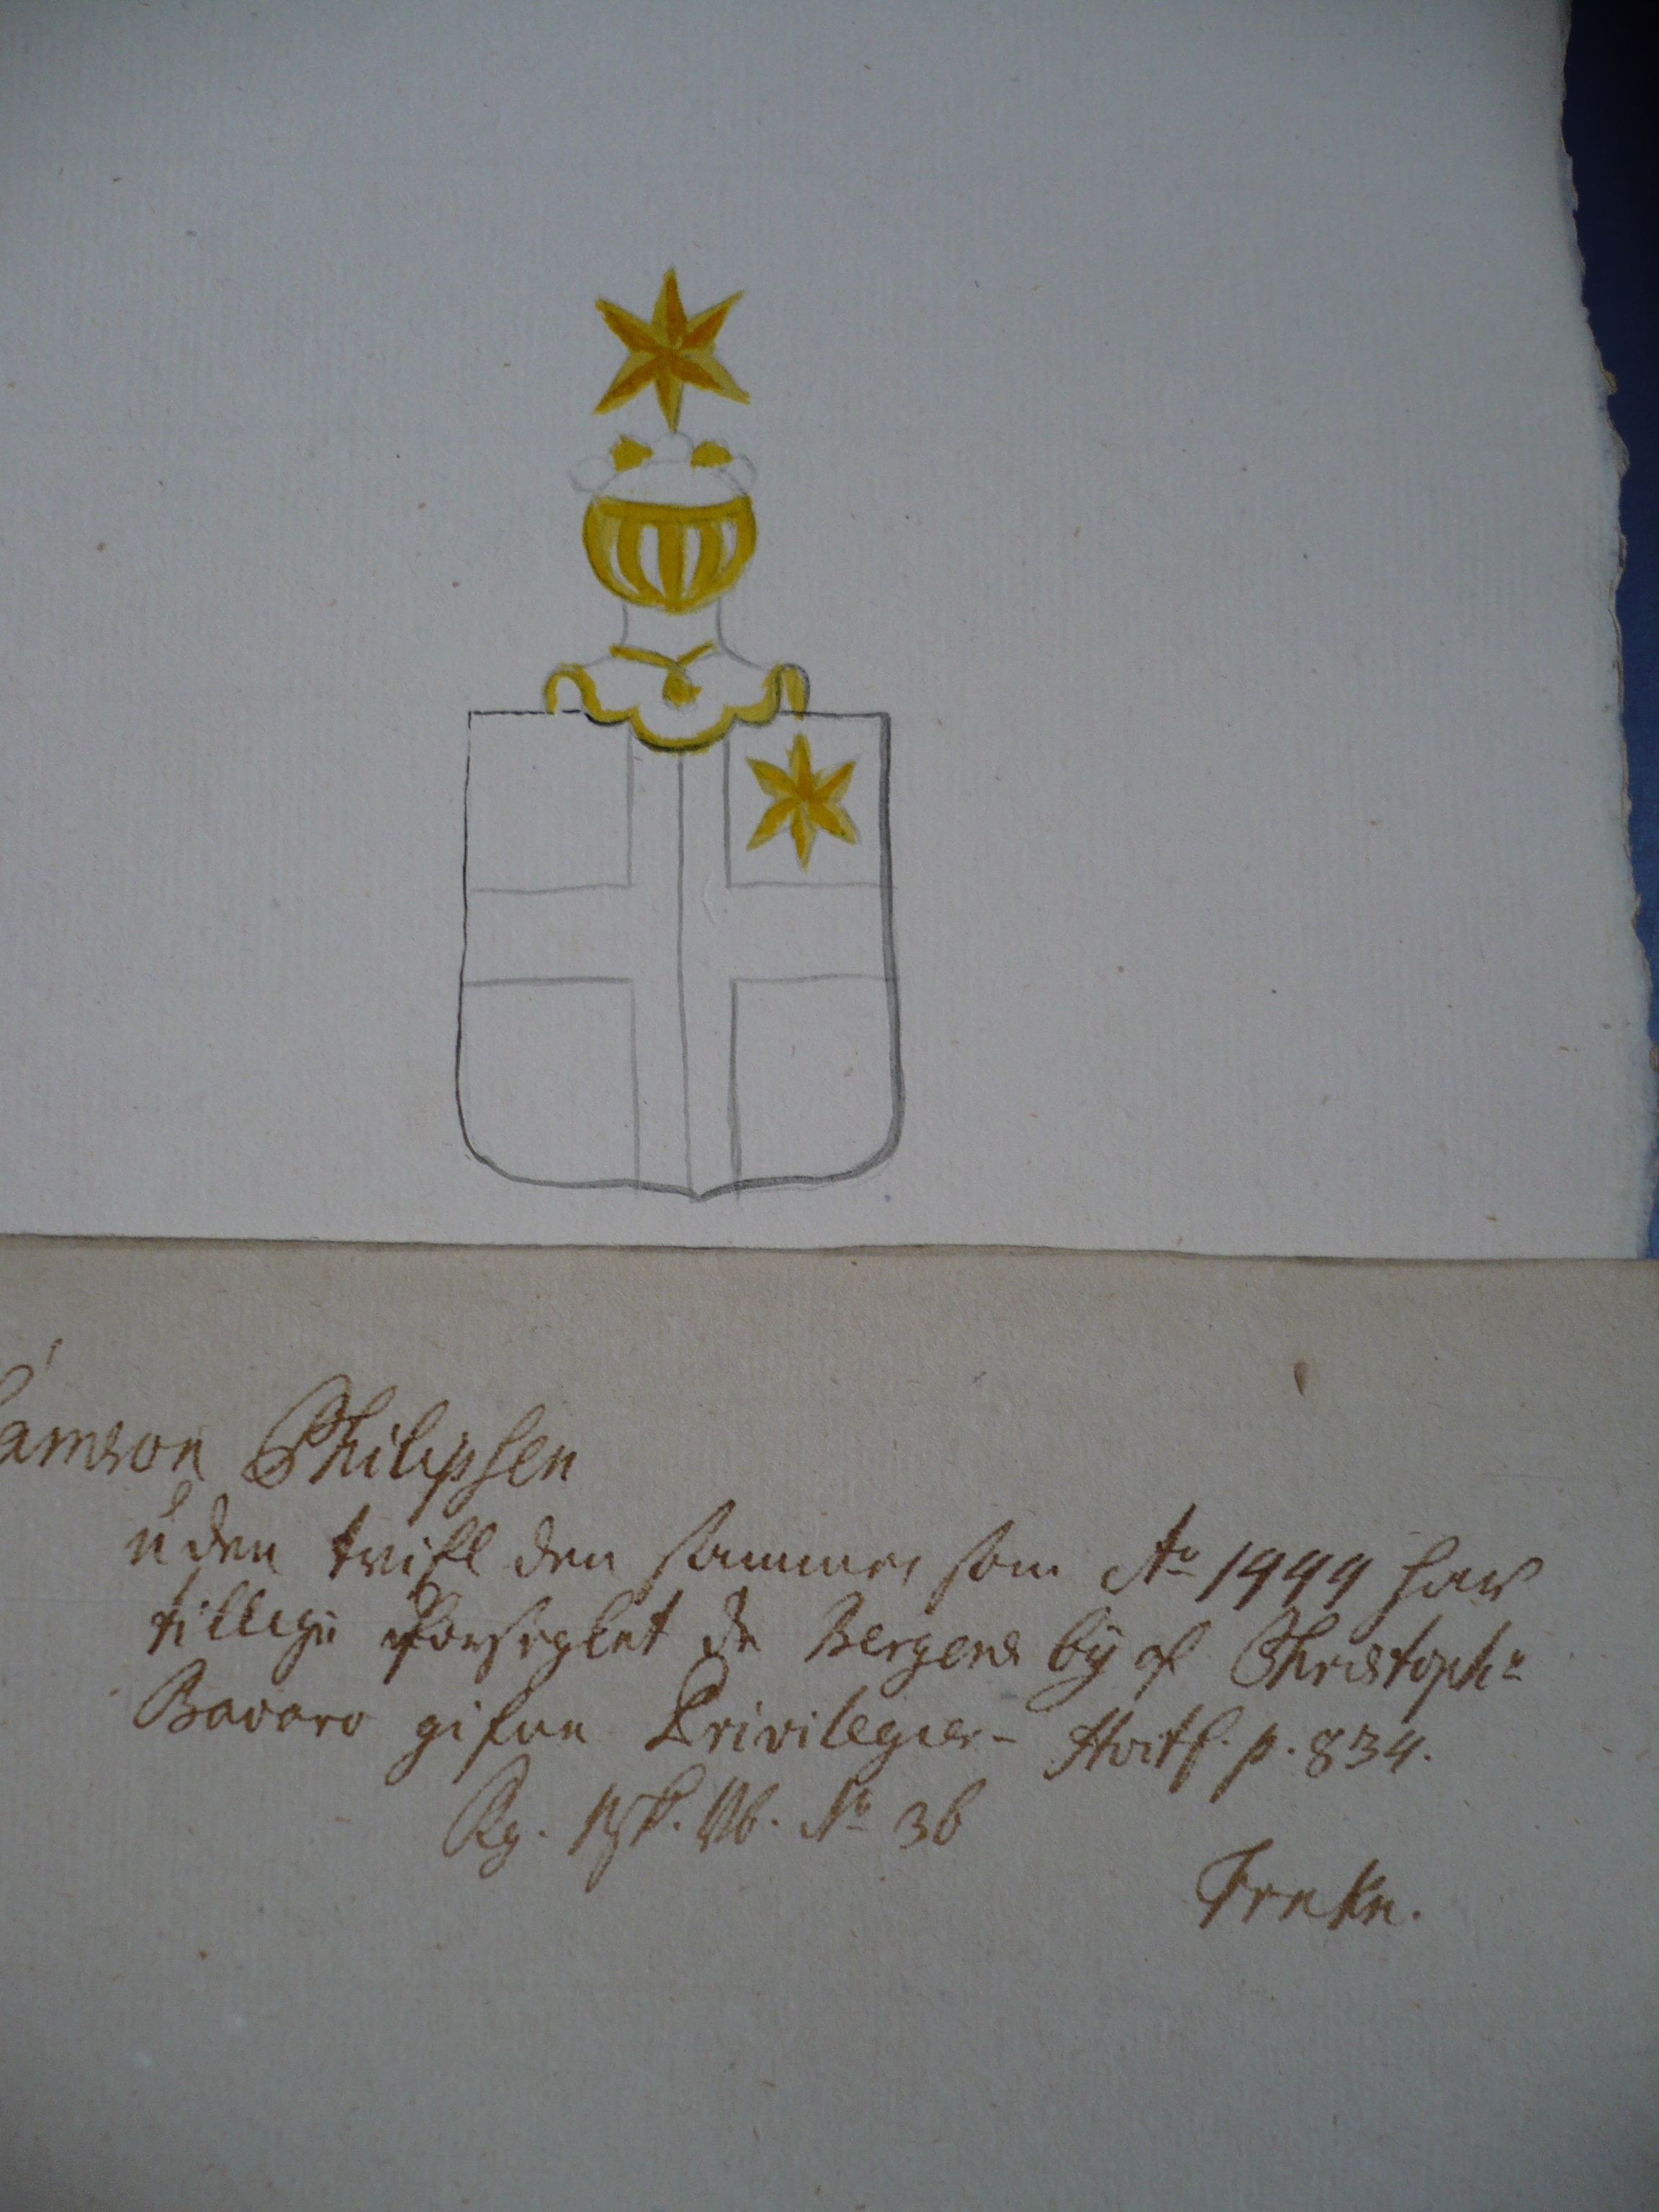 Samson Philipsen
uden tvifl den samme, som Ao 1444 har
tillige forseglet de Bergens by af Christopho
Bavaro gifne Privilegier - Hvitf. p. 834.
No 36